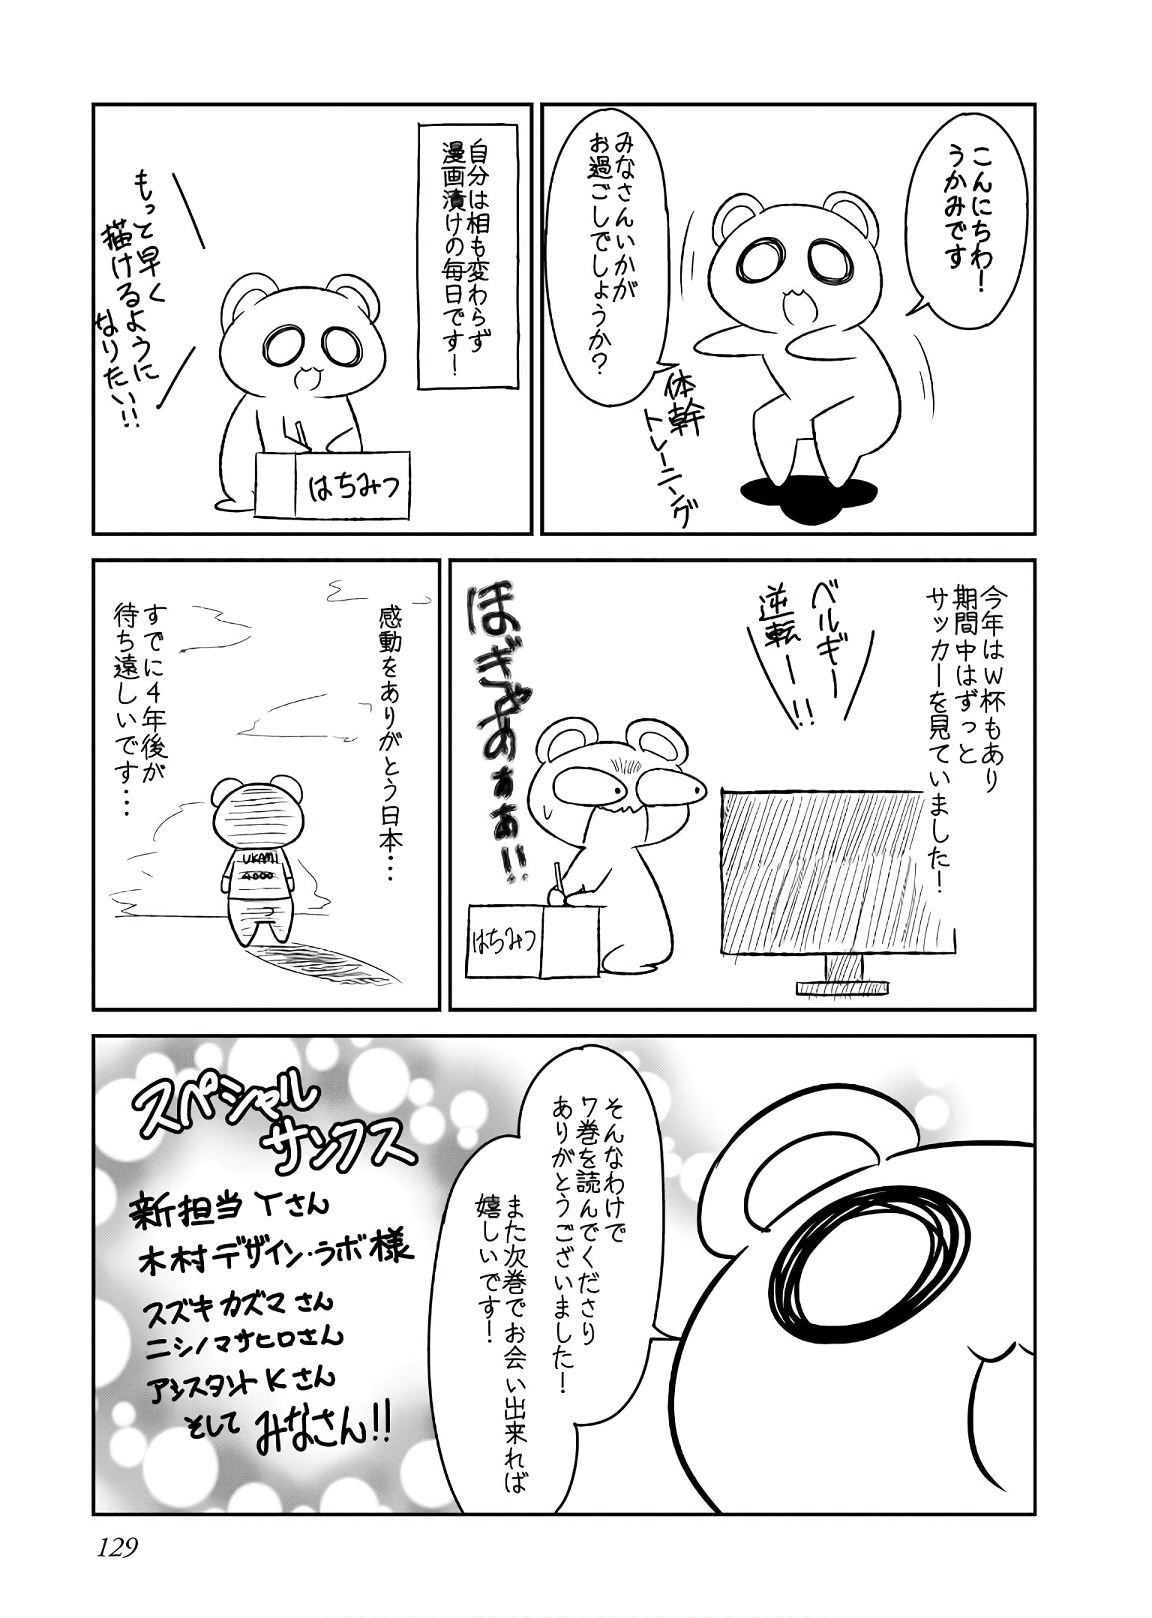 こんにちわ！
うかみです
みなさんいかが
お過ごしでしょうか？
体幹
トレーニング
自分は相も変わらず
漫画漬けの毎日です！
もっと早く
描けるように
なりたい!!
はちみつ
今年はＷ杯もあり
期間中はずっと
サッカーを見ていました！
ベルギー
逆転ー!!
ほぎゃあぁぁ!!
はちみつ
感動をありがとう日本…
すでに４年後が
待ち遠しいです…
UKAMI
4000
そんなわけで
７巻を読んでくださり
ありがとうございました！
また次巻でお会い出来れば
嬉しいです！
スペシャル
サンクス
新担当Yさん
木村デザイン・ラボ様
スズキカズマさん
ニシノマサヒロさん
アシスタントKさん
そして みなさん!!
129